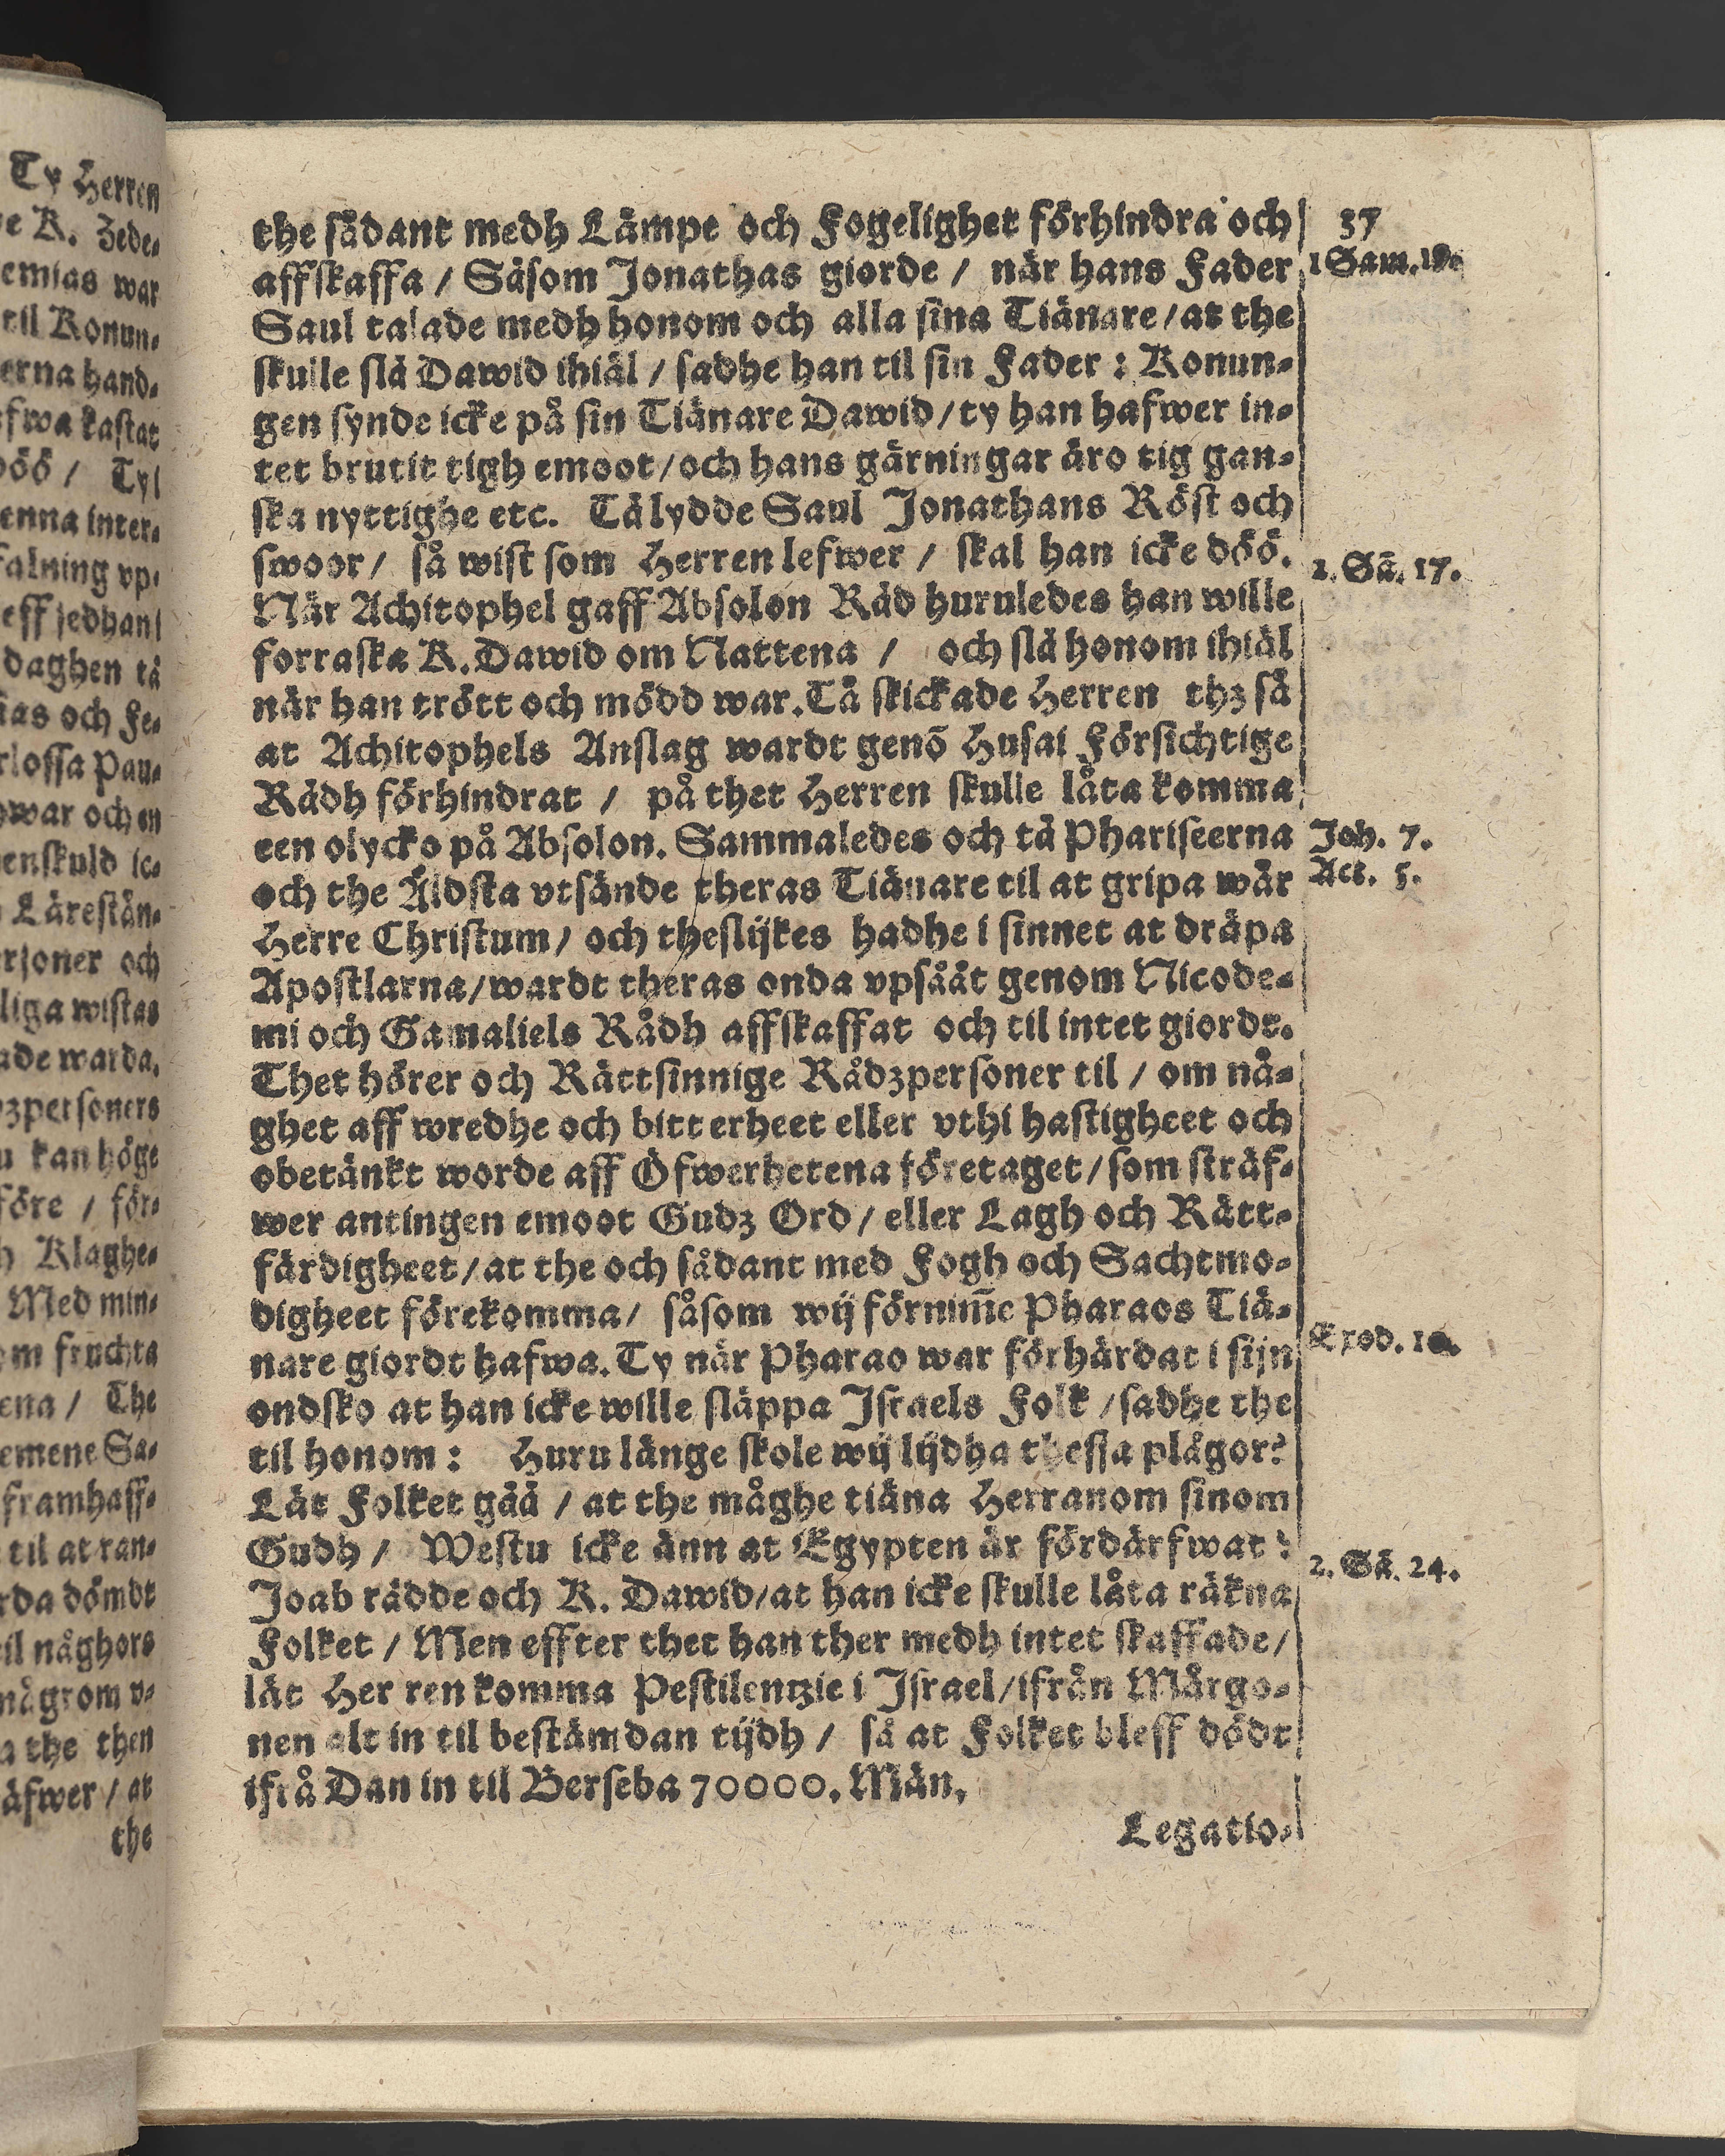 Ty Herren
e K. Zede-
emias war
til Konun-
erna hand-
fwa kastat
döö / Ty
enna inter-
falning vp-
eff jedhan
daghen tå
ias och Fe-
rlossa Pau-
war och en
enskuld ic-
Lärestån-
rsoner och
liga wistas
ade warda,
dzpersoners
u kan höge
före / för-
h Klaghe-
Med min-
om fruchta
ena / The
emene Sa-
framhaff-
til at ran-
rda dömdt
il någhors
någrom v-
a the then
äfwer / at
the
37
the sådant medh Lämpe och Fogelighet förhindra och
affskaffa / Såsom Jonathas giorde / när hans Fader
Saul talade medh honom och alla sina Tiänare / at the
skulle slå Dawid ihiäl / sadhe han til sin Fader : Konun-
gen synde icke på sin Tiänare Dawid / ty han hafwer in-
tet brutit tigh emoot / och hans gärningar äro tig gan-
ska nyttighe etc. Tå lydde Saul Jonathans Röst och
swoor / så wist som Herren lefwer / skal han icke döö.
När Achitophel gaff Absolon Råd huruledes han wille
forraska K. Dawid om Nattena / och slå honom ihiäl
när han trött och mödd war. Tå skickade Herren thz så
at Achitophels Anslag wardt genō Husai Försichtige
Rådh förhindrat / på thet Herren skulle låta komma
een olycko på Absolon. Sammaledes och tå Phariseerna
och the Äldsta vtsände theras Tiänare til at gripa wår
Herre Christum / och theslijkes hadhe i sinnet at dräpa
Apostlarna / wardt theras onda vpsååt genom Nicode-
mi och Gamaliels Rådh affskaffat och til intet giordt.
Thet hörer och Rättsinnige Rådzpersoner til / om nå-
ghet aff wredhe och bitterheet eller vthi hastigheet och
obetänkt worde aff Öfwerhetena företaget / som sträf-
wer antingen emoot Gudz Ord / eller Lagh och Rätt-
färdigheet / at the och sådant med Fogh och Sachtmo-
digheet förekomma / såsom wij förnim̄e Pharaos Tiä-
nare giordt hafwa. Ty när Pharao war förhärdat i sijn
ondsko at han icke wille släppa Israels Folk / sadhe the
til honom : Huru länge skole wij lijdha thessa plågor?
Låt Folket gåå / at the måghe tiäna Herranom sinom
Gudh / Westu icke änn at Egypten är fördärfwat :
Joab rådde och K. Dawid / at han icke skulle låta räkna
Folket / Men effter thet han ther medh intet skaffade /
lät Her ren komma Pestilentzie i Israel / ifrån Mårgo-
nen alt in til bestämdan tijdh / så at Folket bleff dödt
ifrå Dan in til Berseba 70000. Män,
Legatio-
1 Sam. 19.
2. Sā. 17.
Joh. 7.
Act. 5.
Exod. 10.
2. Sā. 24.